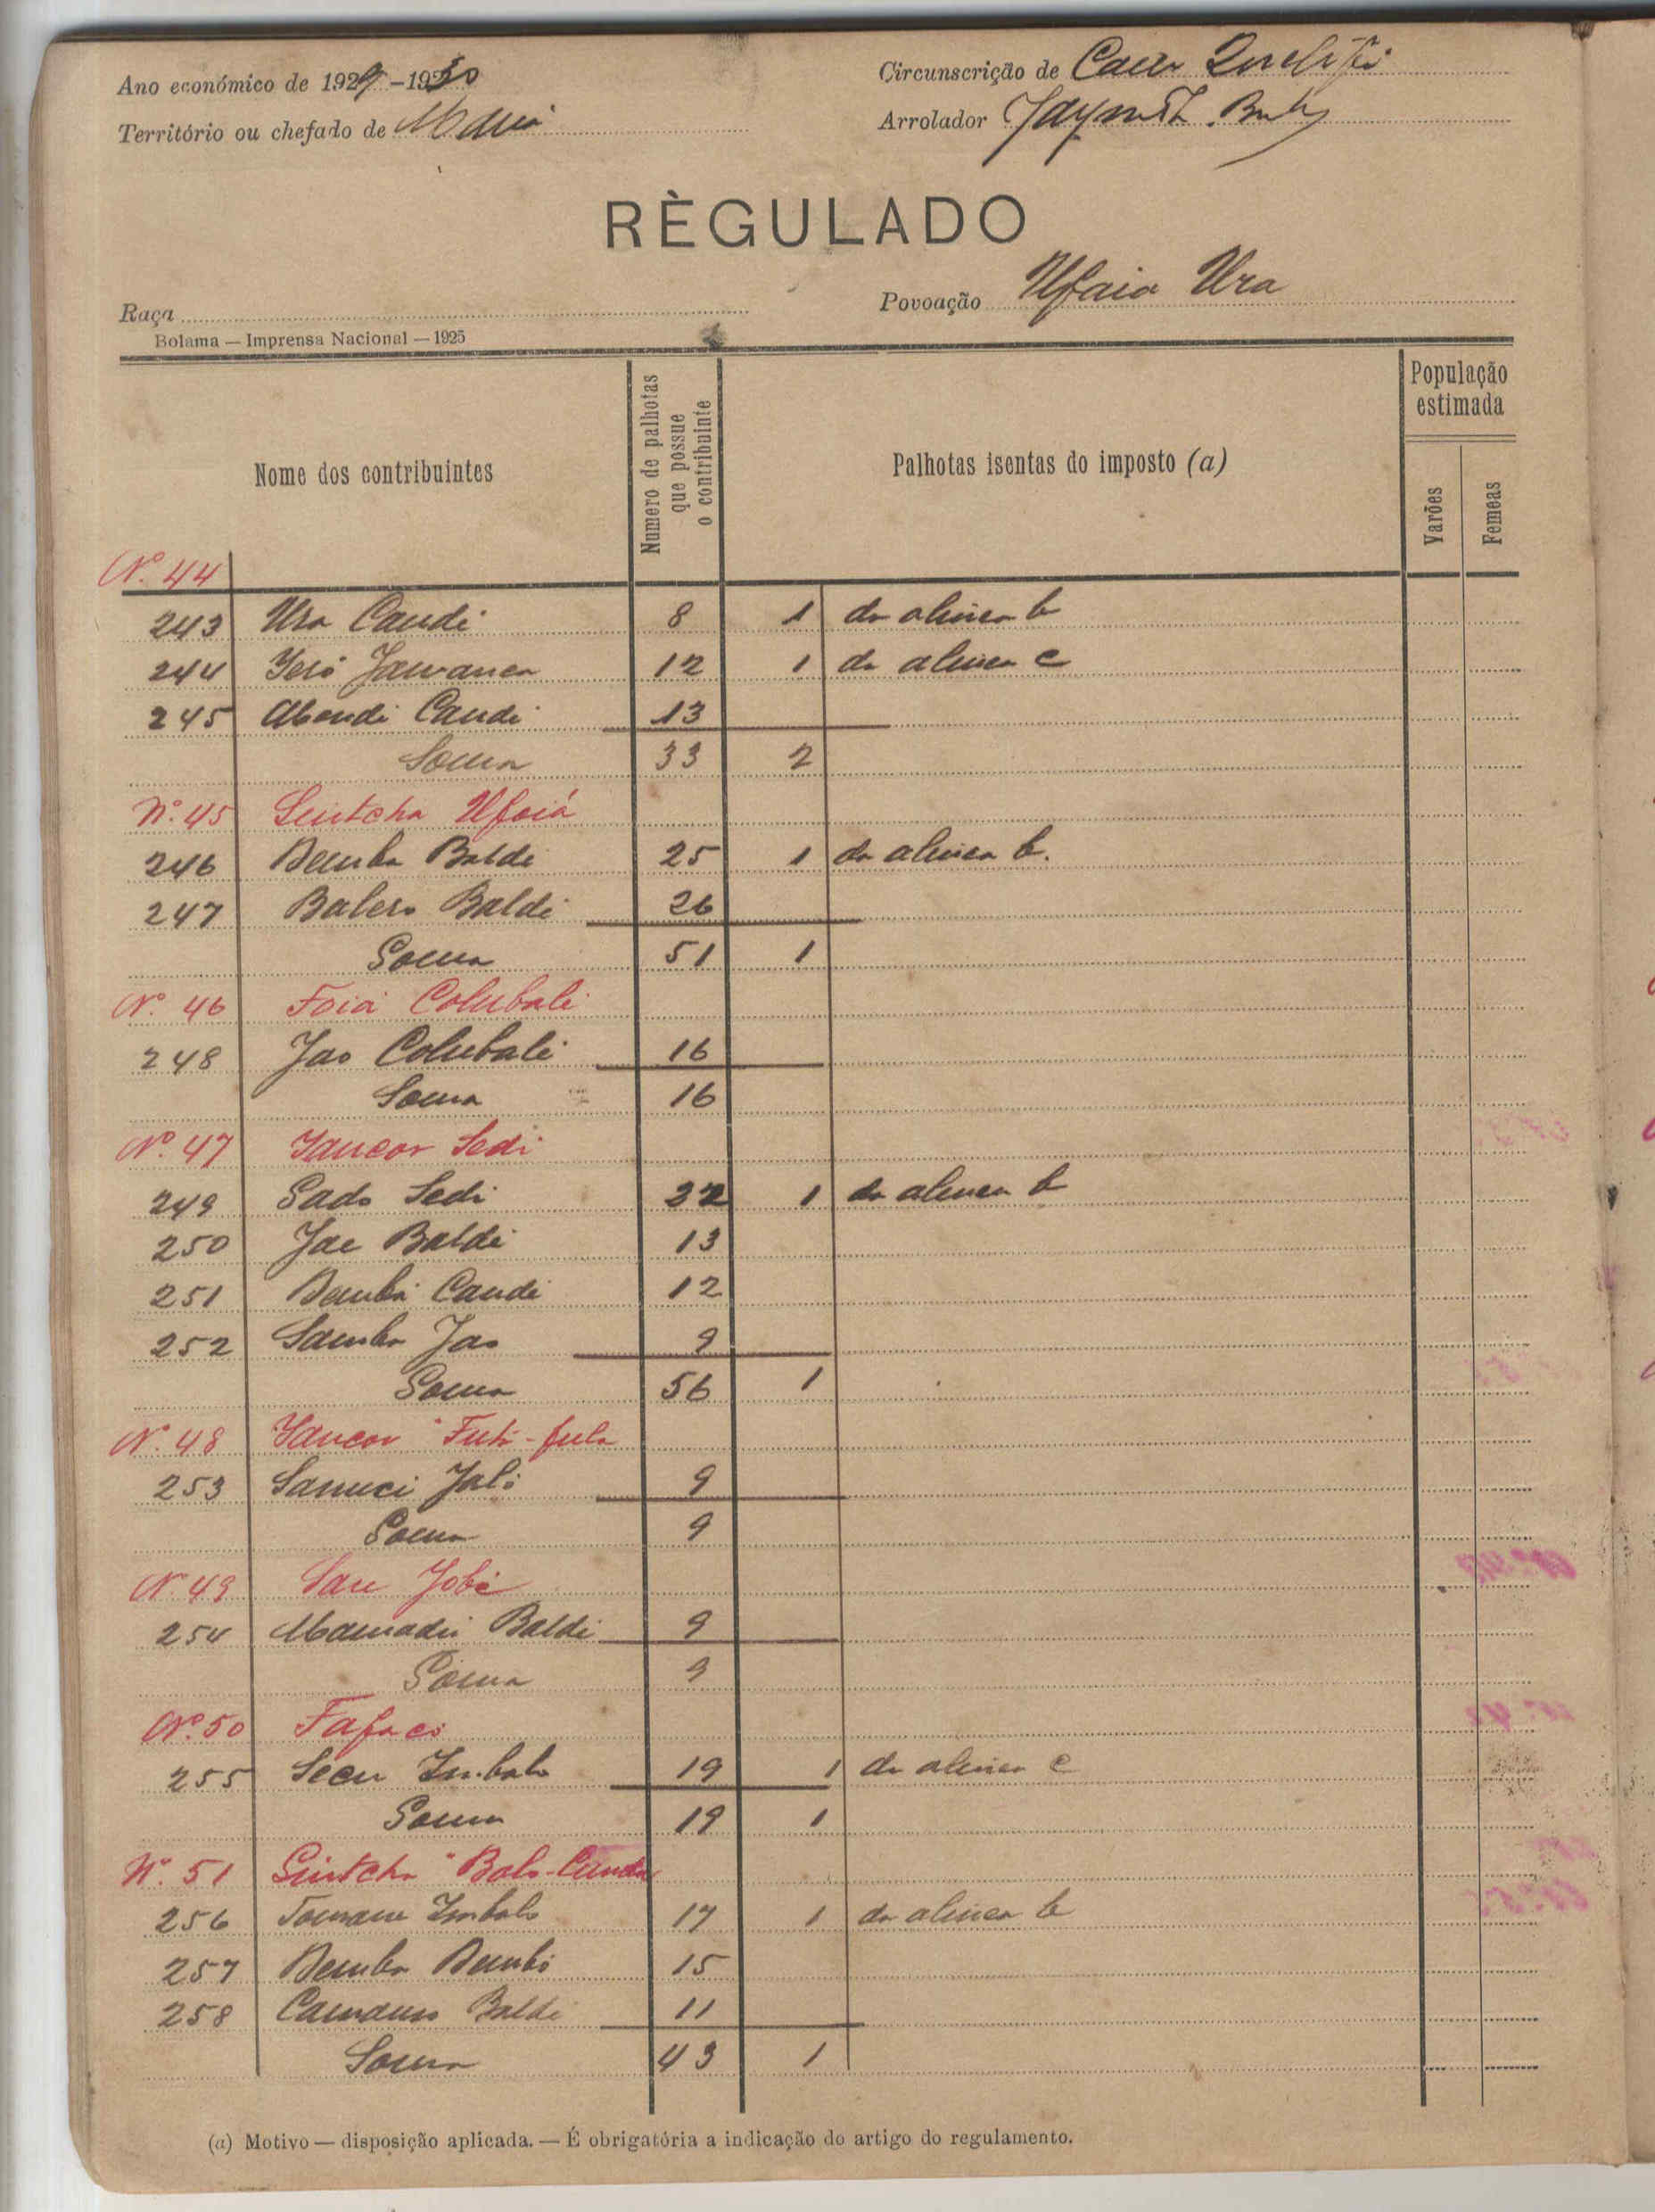 Ano económico de 1929-1930
Circunscrição de
Território ou chefado de
Arrolador
RÈGULADO
Raça
Povoação Ufaia Ura
Bolama — Imprensa Nacional — 1925
Nome dos contribuintes
Numero de palhotas que possue o contribuinte
Palhotas isentas do imposto (a)
População estimada
Varões
Femeas
Nº 44
243 Ura Candi 8 1 da alinea b
244 Jawanca 12 1 da alinea c
245 Abondi Candi 13
Soma 33 2
Nº 45 Sintcha Ufoiá
246 Demba Baldi 25 1 da alinea b.
247 Balero Baldi 26
Soma 51 1
Nº 46 Foiá Colubali
248 Jao Colubali 16
Soma 16
Nº 47 Jancor Sedi
249 Sado Sedi 22 1 da alinea b
250 Jae Baldi 13
251 Demba Candi 12
252 Samba Jao 9
Soma 56 1
Nº 48 Jancor Futa-fula
253 Sanuci Jaló 9
Soma 9
Nº 49 Sare Jobé
254 Mamadú Baldi 9
Soma 9
Nº 50 Fafaco
255 Secu Imbalo 19 1 da alinea c
Soma 19 1
Nº 51 Sintcha Bolo-
256 Imbalo 17 1 da alinea b
257 Demba 15
258 Baldi 11
Soma 43 1
(a) Motivo — disposição aplicada. — É obrigatória a indicação do artigo do regulamento.